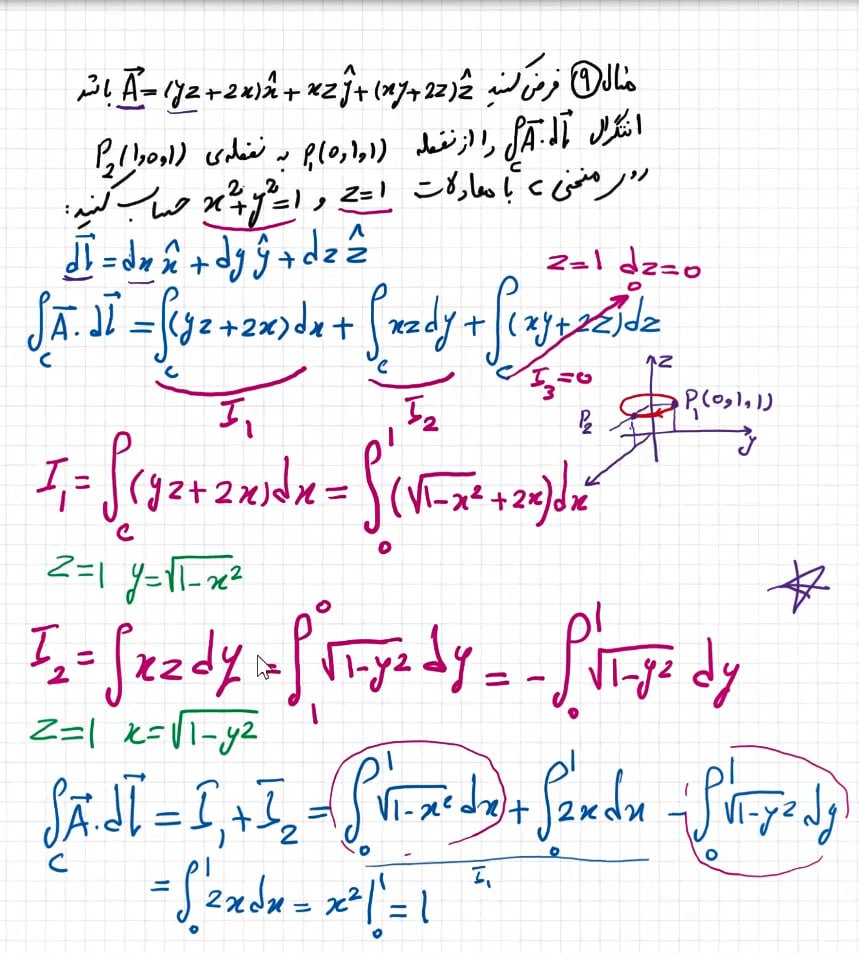 مثال ⑨ فرض کنید A⃗ = (yz+2x)x̂ + xzŷ + (xy+2z)ẑ باشد
انتگرال ∫_C A⃗.dl⃗ را از نقطه P₁(0,1,1) به نقطه‌ی P₂(1,0,1)
روی منحنی C با معادلات x²+y²=1 , z=1 حساب کنید:
dl⃗ = dx x̂ + dy ŷ + dz ẑ
z=1 dz=0
∫_C A⃗.dl⃗ = ∫_C (yz+2x)dx + ∫_C xzdy + ∫_C (xy+2z)dz
0
I₁ I₂ I₃=0
z
P₁(0,1,1)
P₂
y
I₁ = ∫_C (yz+2x)dx = ∫₀¹ (√(1-x²) +2x)dx
z=1 y=√(1-x²)
I₂ = ∫xzdy = ∫₁⁰ √(1-y²) dy = -∫₀¹ √(1-y²) dy
z=1 x=√(1-y²)
∫_C A⃗.dl⃗ = I₁+I₂ = ∫₀¹ √(1-x²) dx + ∫₀¹ 2xdx - ∫₀¹ √(1-y²) dy
I₁
= ∫₀¹ 2xdx = x²|₀¹ = 1